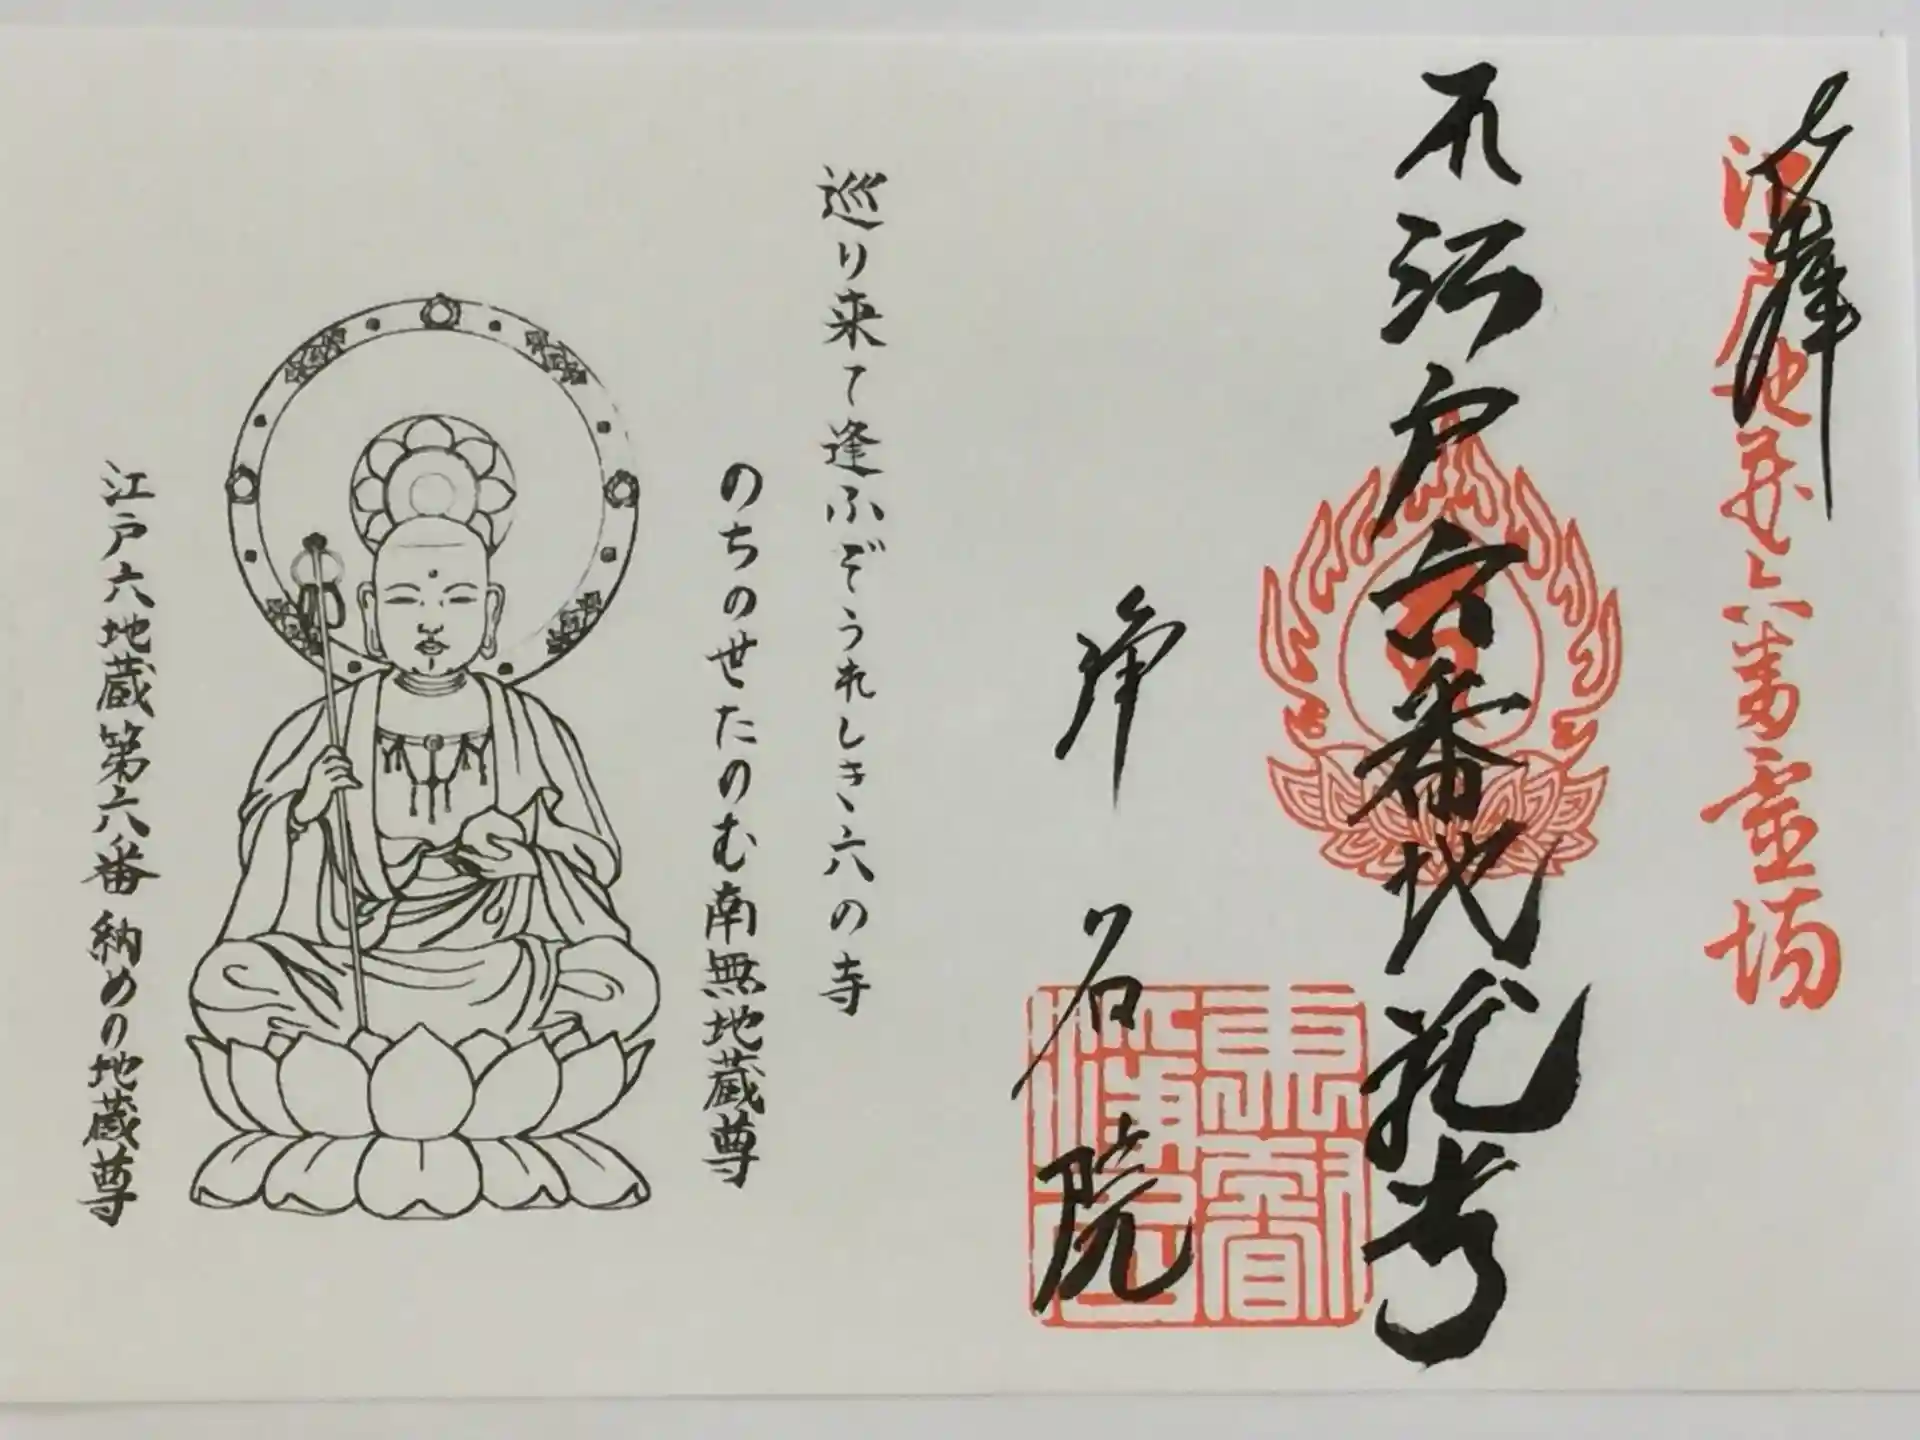 奉拝
江戸地蔵六番霊場
江戸六番地蔵尊
浄名院
巡り来て逢ふぞうれしき六の寺
のちのせたのむ南無地蔵尊
江戸六地蔵第六番 納めの地蔵尊